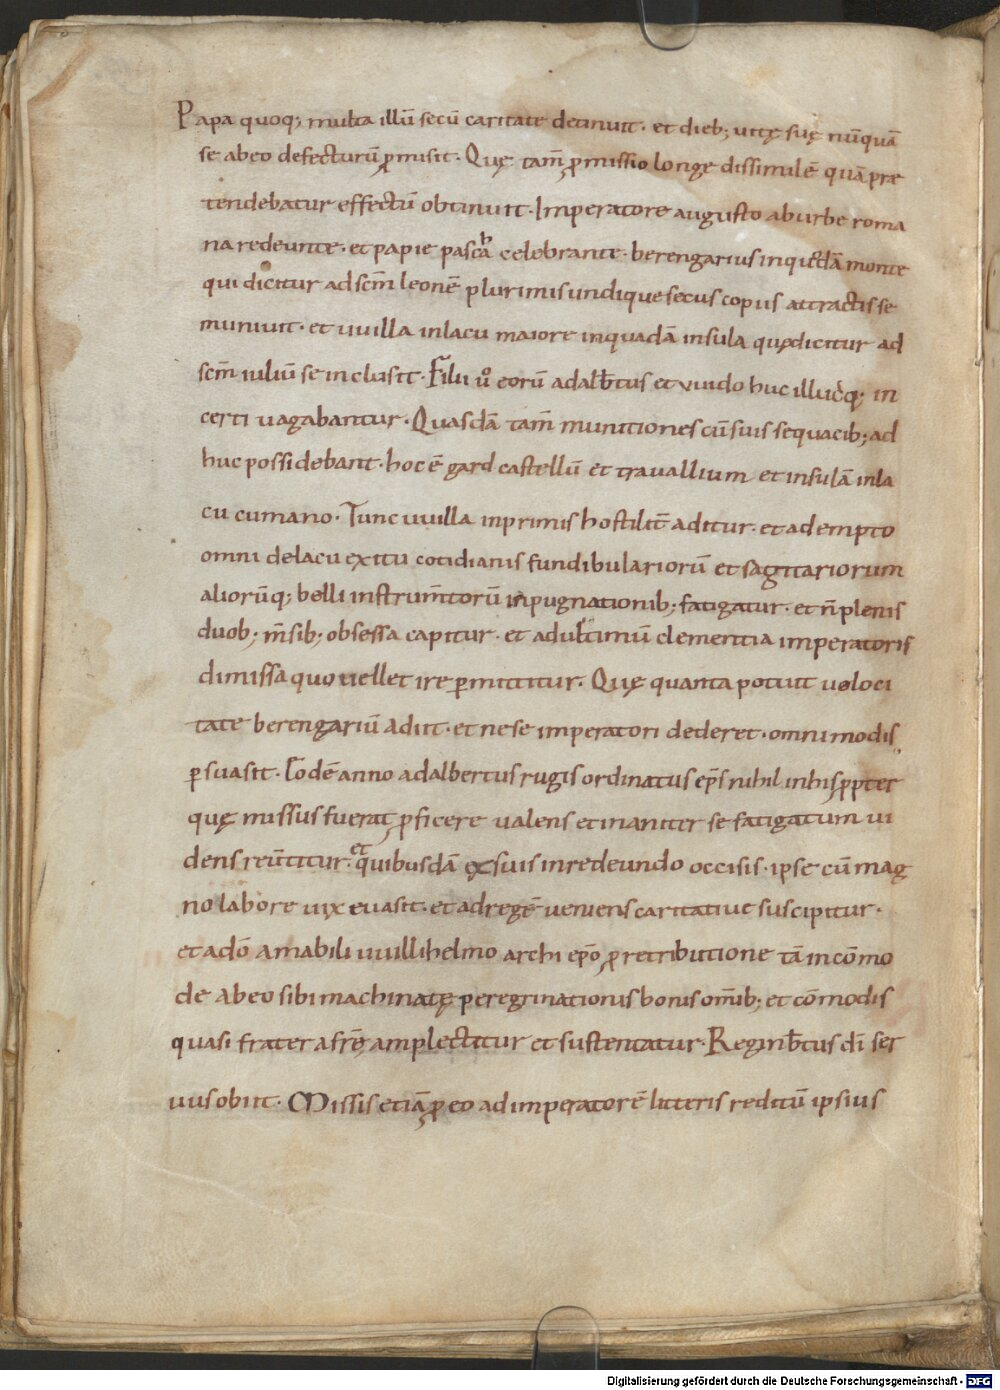 Papa quoq; multa illū secū caritate detinuit· et dieb; uitę suę nūquā
se ab eo defecturū ꝓmisit· Quę tam̄ ꝓmissio longe dissimilē quā præ
tendebatur effectū obtinuit· Imperatore augusto ab urbe roma
na redeunte· et papie pascʰa celebrante· berengarius in quedā monte
qui dicitur ad scm̄ leonē plurimis undique secus copiis attractis se
muniuit· et uuilla in lacu maiore in quadā insula quę dicitur ad
scm̄ iuliū se inclusit· Filii uº eorū adalb̄tus et vuido huc illucq; in
certi uagabantur· Quasdā tam̄ munitiones cū suis sequacib; ad
huc possidebant· hoc ē gard castellū et trauallium et insulā in la
cu cumano· Tunc uuilla inprimis hostilit̄ aditur· et adempto
omni de lacu exitu cotidianis fundibulariorū et sagittariorum
aliorūq; belli instrum̄torū inpugnationib; fatigatur· et n̄ plenis
duob; m̄sib; obsessa capitur· et ad ultimū clementia imperatoris
dimissa quo uellet ire ꝑmittitur· Quę quanta potuit ueloci
tate berengariū adiit· et ne se imperatori dederet· omnimodis
ꝑsuasit· Eodē anno adalbertus rugis ordinatus ep̄s nihil in his ꝓpter
quę missus fuerat ꝓficere ualens et inaniter se fatigatum ui
dens reūtitur· et quibusdā ex suis in redeundo occisis· ipse cū mag
no labore uix euasit· et ad regē ueniens caritatiue suscipitur·
et a dō amabili uuillihelmo archi epō ꝓ retributione tā incōmo
de ab eo sibi machinatę peregrinationis bonis om̄ib; et cōmodis
quasi frater a frē amplectitur et sustentatur· Reginb̄tus dī ser
uus obiit· Missis etiā ꝓ eo ad imperatorē litteris reditū ipsius
Digitalisierung gefördert durch die Deutsche Forschungsgemeinschaft - DFG